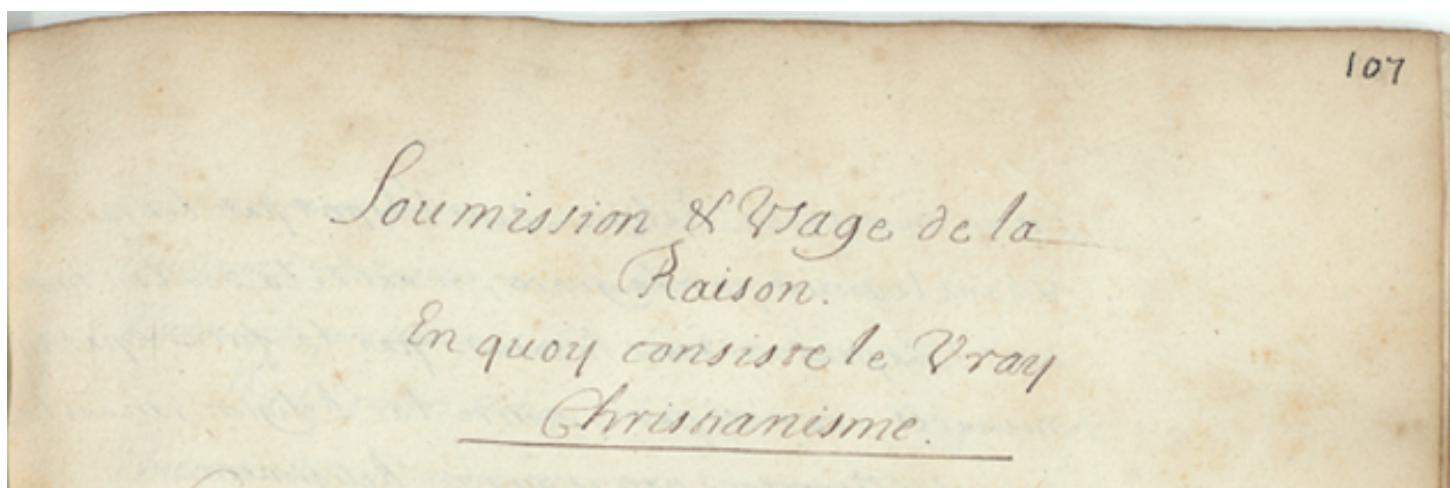 107
Soumission & Vsage de la
Raison.
En quoy consiste le Vray
Christianisme.